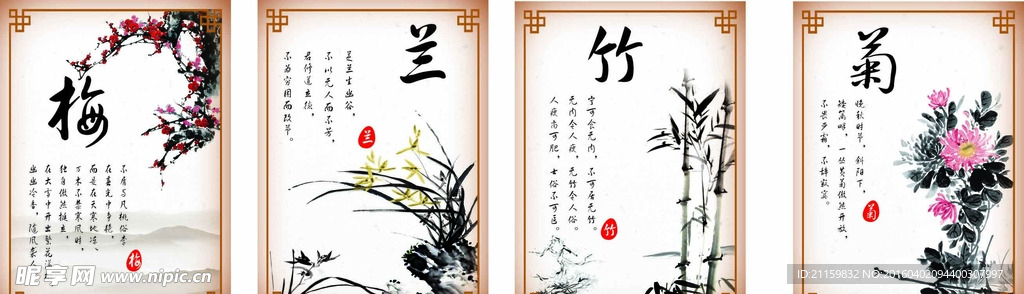 梅
不屑与凡桃俗李
在春光中争艳，
而是在天寒地冻、
万木不禁寒风时，
独自傲然挺立，
在大雪中开出繁花满
幽幽冷香，随风袭人
梅
兰
芝兰生幽谷，
不以无人而不芳，
君修道立德，
不为穷困而改节。
兰
竹
宁可食无肉，不可居无竹。
无肉令人瘦，无竹令人俗。
人瘦尚可肥，士俗不可医。
竹
菊
晚秋时节，斜阳下，
矮篱畔，一丛黄菊傲然开放，
不畏严霜，不辞寂寞。
菊
昵享网 www.nipic.cn
ID:21159832 NO:20160402094400307997